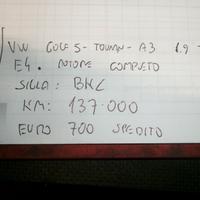 VW GOLF 5 - TOURAN - A3 1.9
E4. MOTORE COMPLETO
SIGLA: BKC
KM: 137.000
EURO 700 SPEDITO